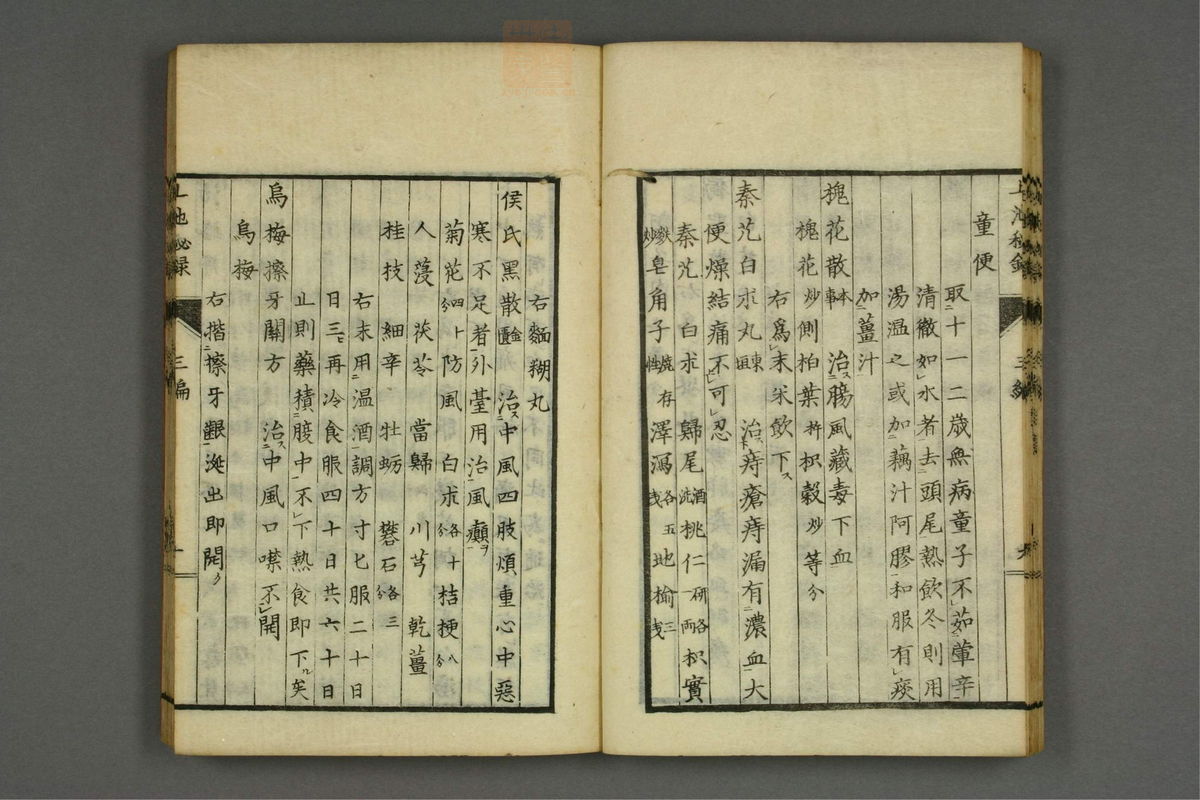 童便
取十一二歲無病童子不茹葷辛
清徹如水者去頭尾熱飲冬則用
湯温之或加藕汁阿膠和服有痰
加薑汁
槐花散 本事 治腸風藏毒下血
槐花 炒 側柏葉 杵 枳殼 炒 等分
右爲末米飲下
秦艽白朮丸 東垣 治痔瘡痔漏有濃血大
便燥結痛不可忍
秦艽 白朮 歸尾 酒洗 桃仁 研各一兩 枳實
麩炒 皂角子 燒存性 澤瀉 各五戔 地榆 三戔
右麵糊丸
侯氏黑散 金匱 治中風四肢煩重心中惡
寒不足者外臺用治風癲
菊花 四十分 防風 白朮 各十分 桔梗 八分
人蓡 茯苓 當歸 川芎 乾薑
桂枝 細辛 牡蛎 礬石 各三分
右末用温酒調方寸匕服二十日
日三再冷食服四十日共六十日
止則藥積腹中不下熱食即下矣
烏梅擦牙關方 治中風口噤不開
烏梅
右揩擦牙齦涎出即開
上池秘録 三編